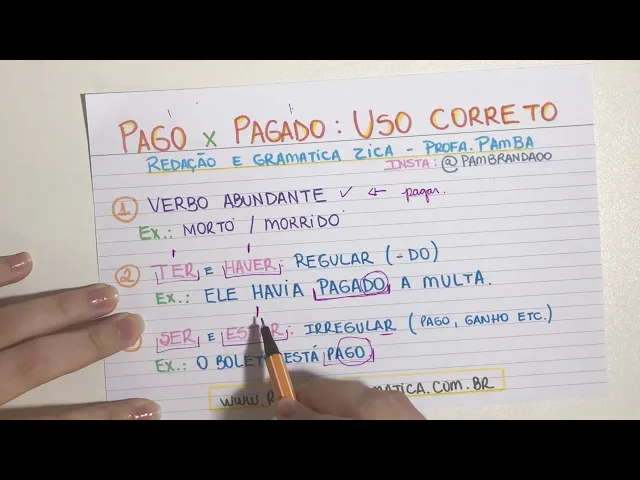 PAGO x PAGADO: USO CORRETO
REDAÇÃO E GRAMATICA ZICA - PROFA. PAMBA
INSTA: @PAMBRANDAOO
1 VERBO ABUNDANTE ✓ ← pagar.
Ex.: MORTO / MORRIDO
2 TER E HAVER: REGULAR (-DO)
Ex.: ELE HAVIA PAGADO A MULTA.
SER E : IRREGULAR (PAGO, GANHO ETC.)
Ex.: O ESTÁ PAGO